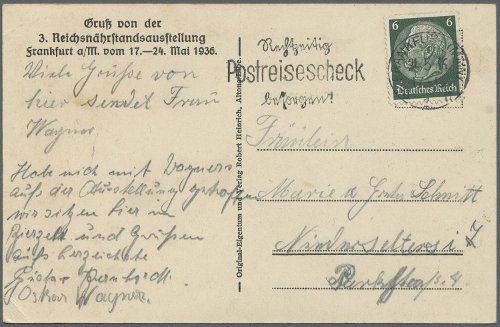 Gruß von der
3. Reichsnährstandsausstellung
Frankfurt a/M. vom 17.—24. Mai 1936.
Viele Grüße von
hier sendet Frau
Wagner
Habe mich mit Wagners
auf der Ausstellung getroffen
wir sitzen hier im
Bierzelt und Grüßen
aufs herzlichste
Oskar Wagner.
Original-Eigentum und Verlag Robert Heinrich, Altona/Elbe.
Rechtzeitig
Postreisescheck
besorgen!
6 6
Deutsches Reich
Fräulein
Marie a. Schmitt
Niederselters i/T
Parkstraße 4